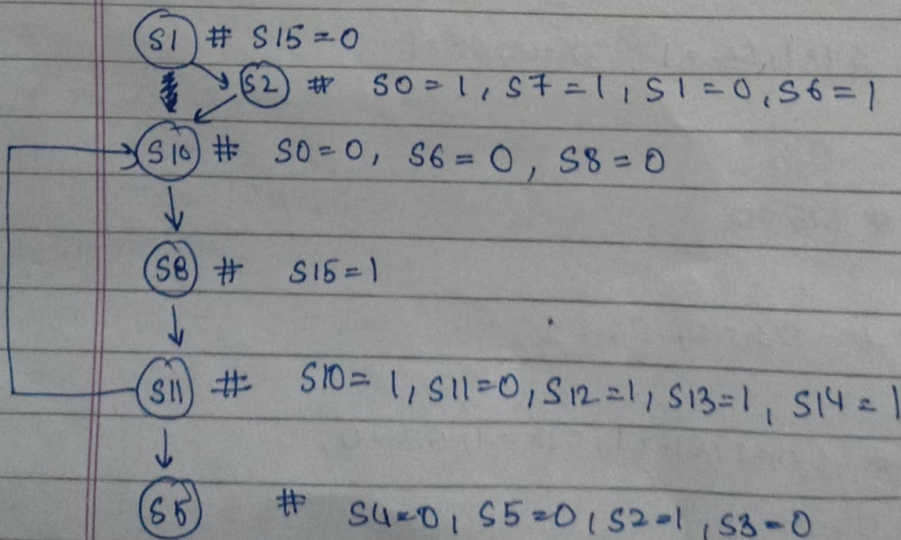 S1 # S15=0
S2 # S0=1, S7=1, S1=0, S6=1
S10 # S0=0, S6=0, S8=0
S8 # S15=1
S11 # S10=1, S11=0, S12=1, S13=1, S14=1
S5 # S4=0, S5=0, S2=1, S3=0